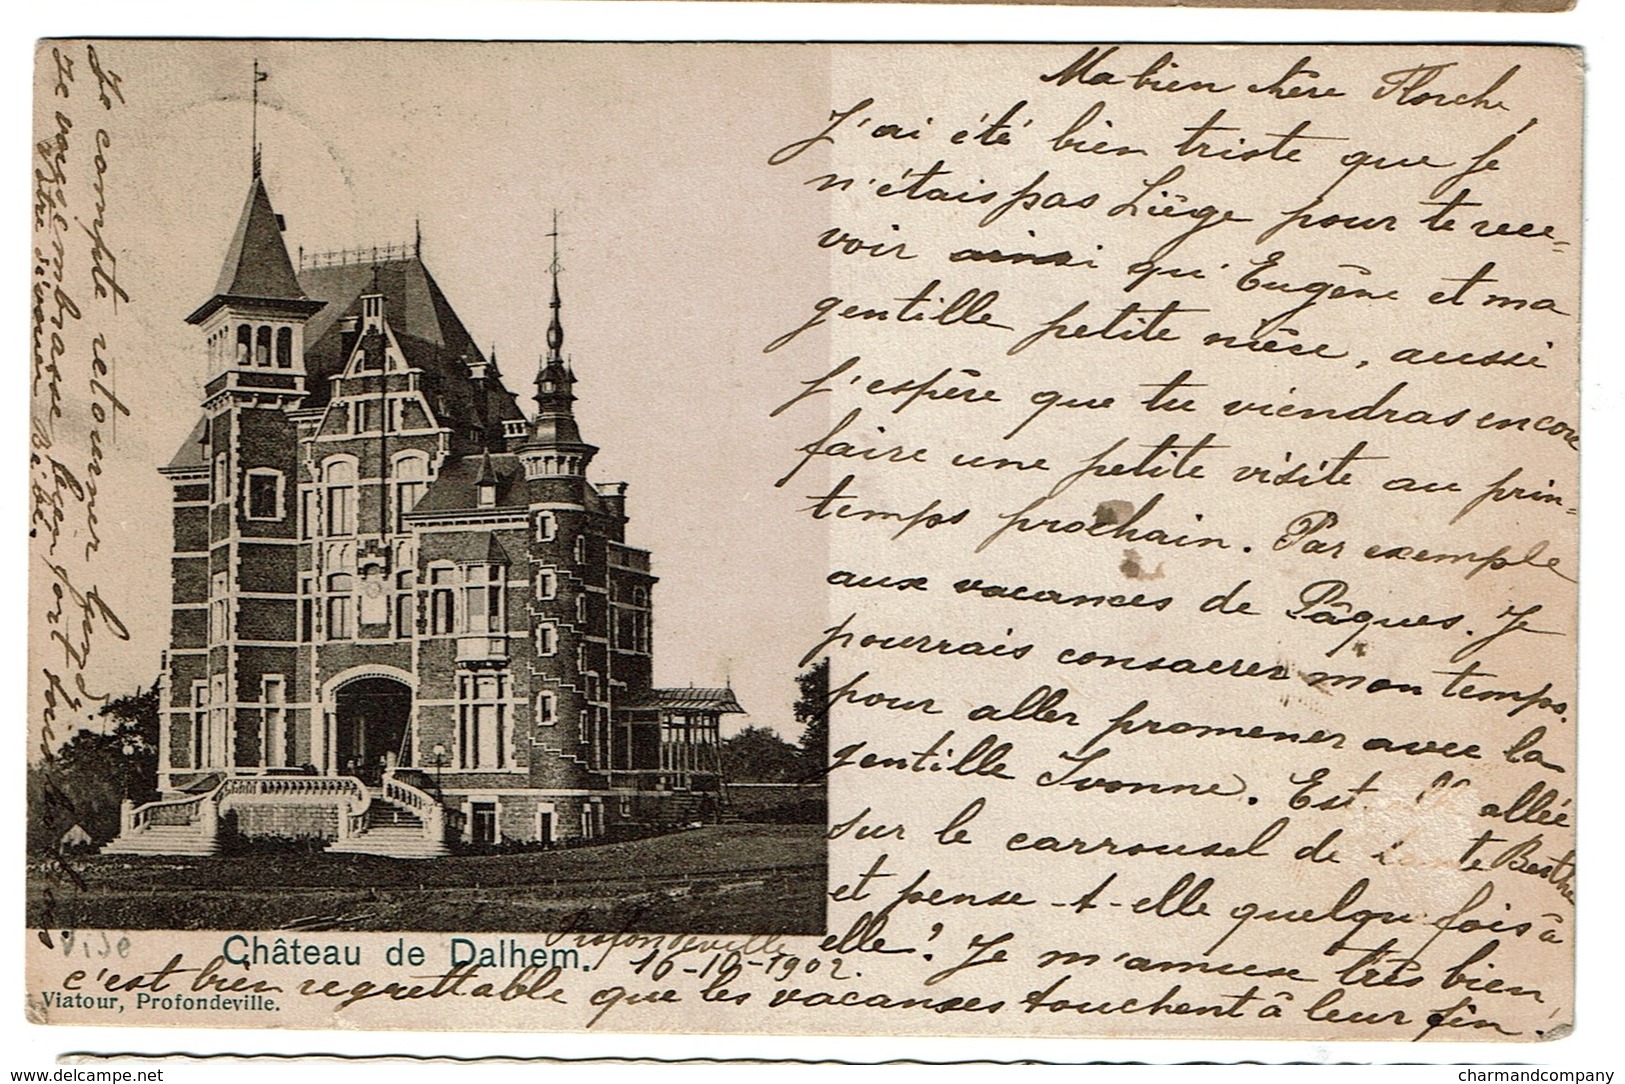 Ma bien chère Florche,
J'ai été bien triste que je
n'étais pas Liège pour te rece-
voir ainsi qu'Eugène et ma
gentille petite nièce, aussi
j'espère que tu viendras encore
faire une petite visite au prin-
temps prochain. Par exemple
aux vacances de Pâques. Je
pourrais consacrer mon temps
pour aller promener avec la
gentille Yvonne. Est allée
sur le carrousel de tante Berthe
et pense-t-elle quelqu fois à
elle? Je m'amuse très bien
c'est bien regrettable que les vacances touchent à leur fin!
Profondeville
16-10-1902.
Je compte retourner lundi.
Je vous embrasse bien fort tous
Votre dévouée Bébé.
Visé
Château de Dalhem.
Viatour, Profondeville.
www.delcampe.net
charmandcompany